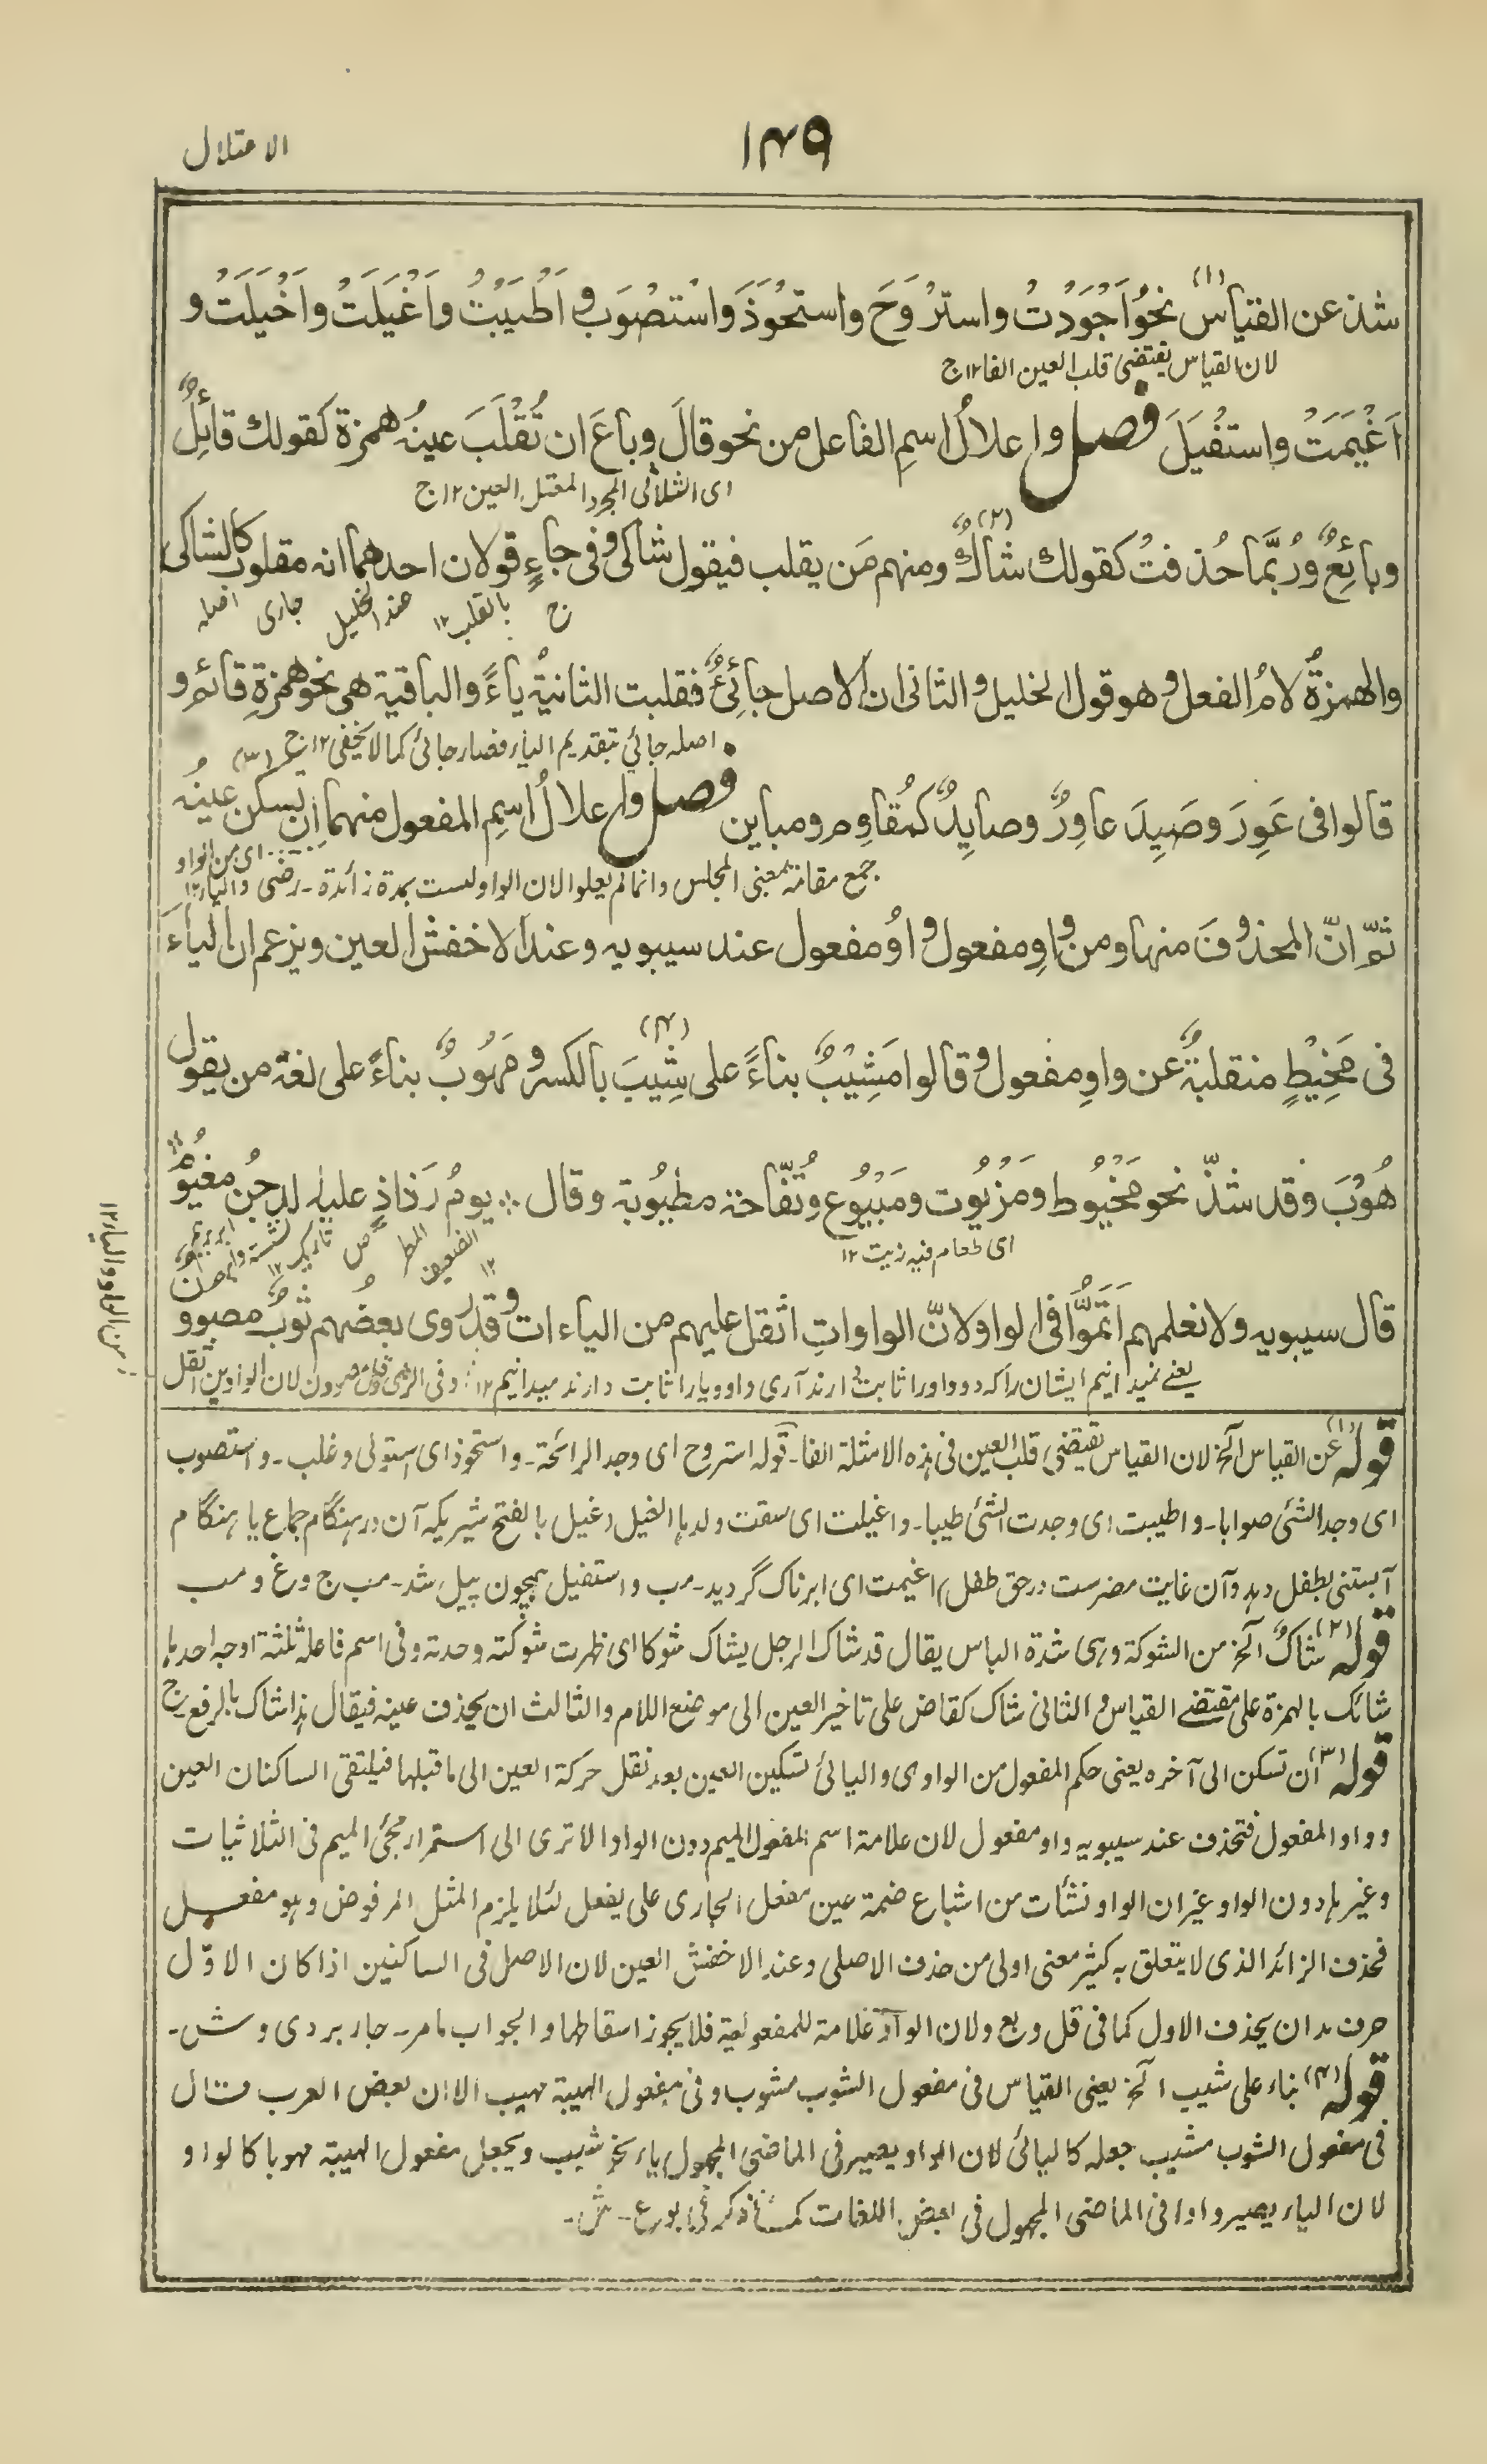 ١٤٩
الاعتلال
شذ عن القياس (١) نحو اَجْوَدْتُ واستَرْوَحَ واستَحْوَذَ واسْتَصْوَبَ و اَطْيَبْتُ واَغْيَلَتْ واَخْيَلَتْ و
لان القياس يقتضى قلب العين الفا ١٢ ج
اَغْيَمَتْ واستَفْيَلَ فصل واعلالُ اسمِ الفاعل من نحو قالَ وباعَ ان تُقْلَبَ عينُه همزة كقولك قائِلٌ
اى الثلاثى المجرد المعتل العين ١٢ ج
وبائِعٌ ورُبَّما حُذفتْ كقولك شاكٌ (٢) ومنهم مَن يقلب فيقول شاكى وفى جاءٍ قولان احدهما انه مقلوب كالشاكى
ج بالقلب ١٢ عند الخليل جارى اصله
والهمزةُ لامُ الفعل وهو قول الخليل والثانى ان الاصل جائِئٌ فقلبت الثانيةُ ياءً والباقية هى نحو همزةِ قائم و
اصله جائي بتقديم الياء فصار جائئ كما لا يخفى ١٢ ج
قالوا فى عَوِرَ وصَيِدَ عاوِرٌ وصايِدٌ كمُقاوِم ومباين فصل واعلالُ اسمِ المفعول منهما ان (٣) تسكن عينُه
اى من الواو والياء ١٢
جمع مقامة بمعنى المجلس وانما لم يعلوا لان الواو ليست بمدة زائدة ـ رضى
ثمّ انّ المحذوفَ منهاو من واوِ مفعول واوُ مفعول عند سيبويه وعند الاخفش العين ويزعم ان الياءَ
فى مَخِيْطٍ منقلبةٌ عن واوِ مفعول وقالوا مَشِيْبٌ بناءً على شِيْبَ (٤) بالكسر و مَهُوبٌ بناءً على لغة من يقول
هُوْبَ وقد شذّ نحو مَخْيُوط ومَزْيُوت ومَبْيُوع وتُفّاحة مطْيُوبة وقال ؞ يومُ رَذاذٍ عليه الدجنُ مغيُومٌ
اى طعام فيه زيت ١٢
المطر الضعيف ١٢ ص
قال سيبويه ولا نعلمهم اَتَمُّوا فى الواو لانّ الواواتِ اثقل عليهم من الياءات وقد روى بعضُهم ثوبٌ مصوون
يعنے نميدانيم ايشان را كه دو واو را ثابت دارند آرى واو ويا را ثابت دارند ميدانيم ١٢ وفى الرضى لان الواوين اثقل
من الواو والياء ١٢
قوله (١) عن القياس آلخ لان القياس تقتضى قلب العين فى هذه الامثلة الفا ـ قوله استروح اى وجد الرائحة ـ واستحوذ اى استولى وغلب ـ واستصوب
اى وجد الشئ صوابا ـ واطيبت اى وجدت الشئ طيبا ـ واغيلت اى سقت ولدها الغيل (غيل بالفتح شيريكه آن در هنگام جماع يا هنگام
آبستنى بطفل دهد وآن غايت مضرست در حق طفل) اغيمت اى ابرناك گرديد ـ مرب واستفيل همچون پيل شد ـ مب ج وغ ومب
قوله (٢) شاكٌ آلخ من الشوكة وهى شدة الباس يقال قد شاك الرجل يشاك شوكا اى ظهرت شوكته وحدته وفى اسم فاعله ثلثة اوجه احدها
شائك بالهمزة على مقتضے القياس والثانى شاك كقاض على تاخير العين الى موضع اللام والثالث ان يحذف عينه فيقال هذا شاك بالرفع ـ ج
قوله (٣) ان تسكن الى آخره يعنى حكم المفعول من الواوى واليائى تسكين العين بعد نقل حركة العين الى ما قبلها فيلتقى الساكنان العين
و واو المفعول فتحذف عند سيبويه واو مفعول لان علامة اسم المفعول الميم دون الواو الا ترى الى استمرار مجئ الميم فى الثلاثيات
وغيرها دون الواو غير ان الواو نشأت من اشباع ضمة عين مفعل الجارى على يفعل لئلا يلزم المثل المرفوض وهو مفعل
فحذف الزائد الذى لا يتعلق به كثير معنى اولى من حذف الاصلى وعند الاخفش العين لان الاصل فى الساكنين اذا كان الاوّل
حرف مد ان يحذف الاول كما فى قل وبع ولان الواو علامة للمفعولية فلا يجوز اسقاطها والجواب ما مر ـ جاربردى وش ـ
قوله (٤) بناء على شيب آلخ يعنى القياس فى مفعول الشوب مشوب وفى مفعول الهيبة مهيب الا ان بعض العرب قال
فى مفعول الشوب مشيب جعله كاليائى لان الواو يصير فى الماضى المجهول ياء نحو شيب ويجعل مفعول الهيبة مهوبا كالواو
لان الياء يصير واوا فى الماضى المجهول فى بعض اللغات كما ذكر فى بوع ـ ش ـ